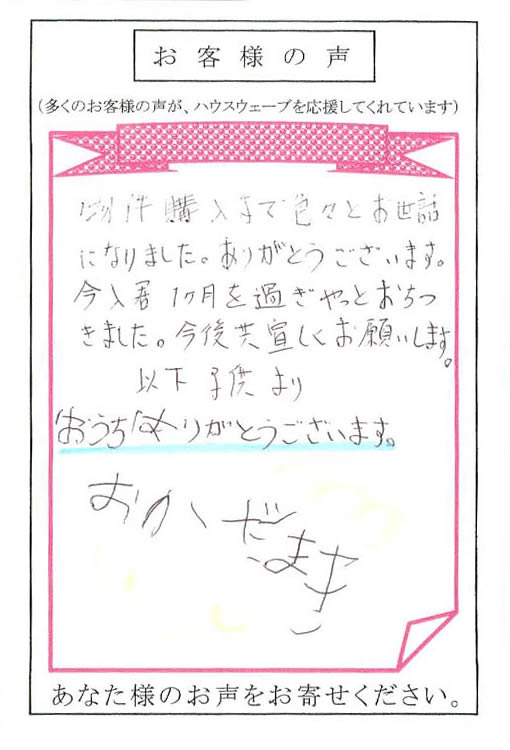 お客様の声
（多くのお客様の声が、ハウスウェーブを応援してくれています）
物件購入まで色々とお世話
になりました。ありがとうございます。
今入居1ヶ月を過ぎやっとおちつ
きました。今後共宜しくお願いします。
以下子供より
おうちありがとうございます。
あなた様のお声をお寄せください。